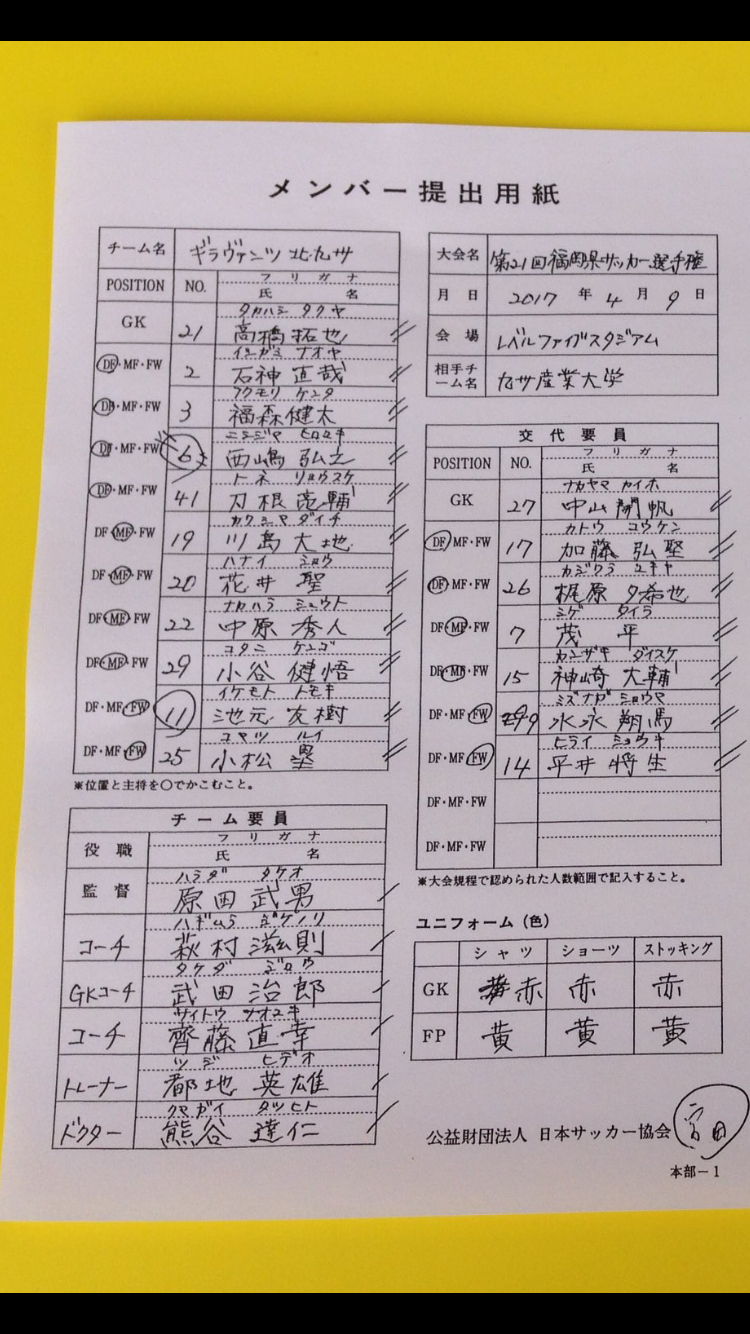 メンバー提出用紙
チーム名 ギラヴァンツ北九州
POSITION NO. フリガナ 氏名
タカハシ タクヤ
GK 21 高橋拓也
イシガミ ナオヤ
DF・MF・FW 2 石神直哉
フクモリ ケンタ
DF・MF・FW 3 福森健太
ニシジマ ヒロユキ
DF・MF・FW 6 西嶋弘之
トネ リョウスケ
DF・MF・FW 41 刀根亮輔
カワシマ ダイチ
DF・MF・FW 19 川島大地
ハナイ ショウ
DF・MF・FW 20 花井聖
ナカハラ シュウト
DF・MF・FW 22 中原秀人
コタニ ケンゴ
DF・MF・FW 29 小谷健悟
イケモト トモキ
DF・MF・FW 11 池元友樹
コマツ ルイ
DF・MF・FW 25 小松塁
※位置と主将を○でかこむこと。
チーム要員
役職 フリガナ 氏名
ハラダ タケオ
監督 原田武男
ハギムラ シゲノリ
コーチ 萩村滋則
タケダ ジロウ
GKコーチ 武田治郎
サイトウ ナオユキ
コーチ 齊藤直幸
ツジ ヒデオ
トレーナー 都地英雄
クマガイ タツヒト
ドクター 熊谷達仁
大会名 第21回福岡県サッカー選手権
月日 2017年4月9日
会場 レベルファイブスタジアム
相手チーム名 九州産業大学
交代要員
POSITION NO. フリガナ 氏名
ナカヤマ カイホ
GK 27 中山開帆
カトウ コウケン
DF・MF・FW 17 加藤弘堅
カジワラ ユキヤ
DF・MF・FW 26 梶原夕希也
シゲ タイラ
DF・MF・FW 7 茂平
カンザキ ダイスケ
DF・MF・FW 15 神崎大輔
ミズナガ ショウマ
DF・MF・FW 9 水永翔馬
ヒライ ショウキ
DF・MF・FW 14 平井将生
DF・MF・FW
DF・MF・FW
※大会規程で認められた人数範囲で記入すること。
ユニフォーム（色）
シャツ ショーツ ストッキング
GK 赤 赤 赤
FP 黄 黄 黄
公益財団法人 日本サッカー協会
本部－1